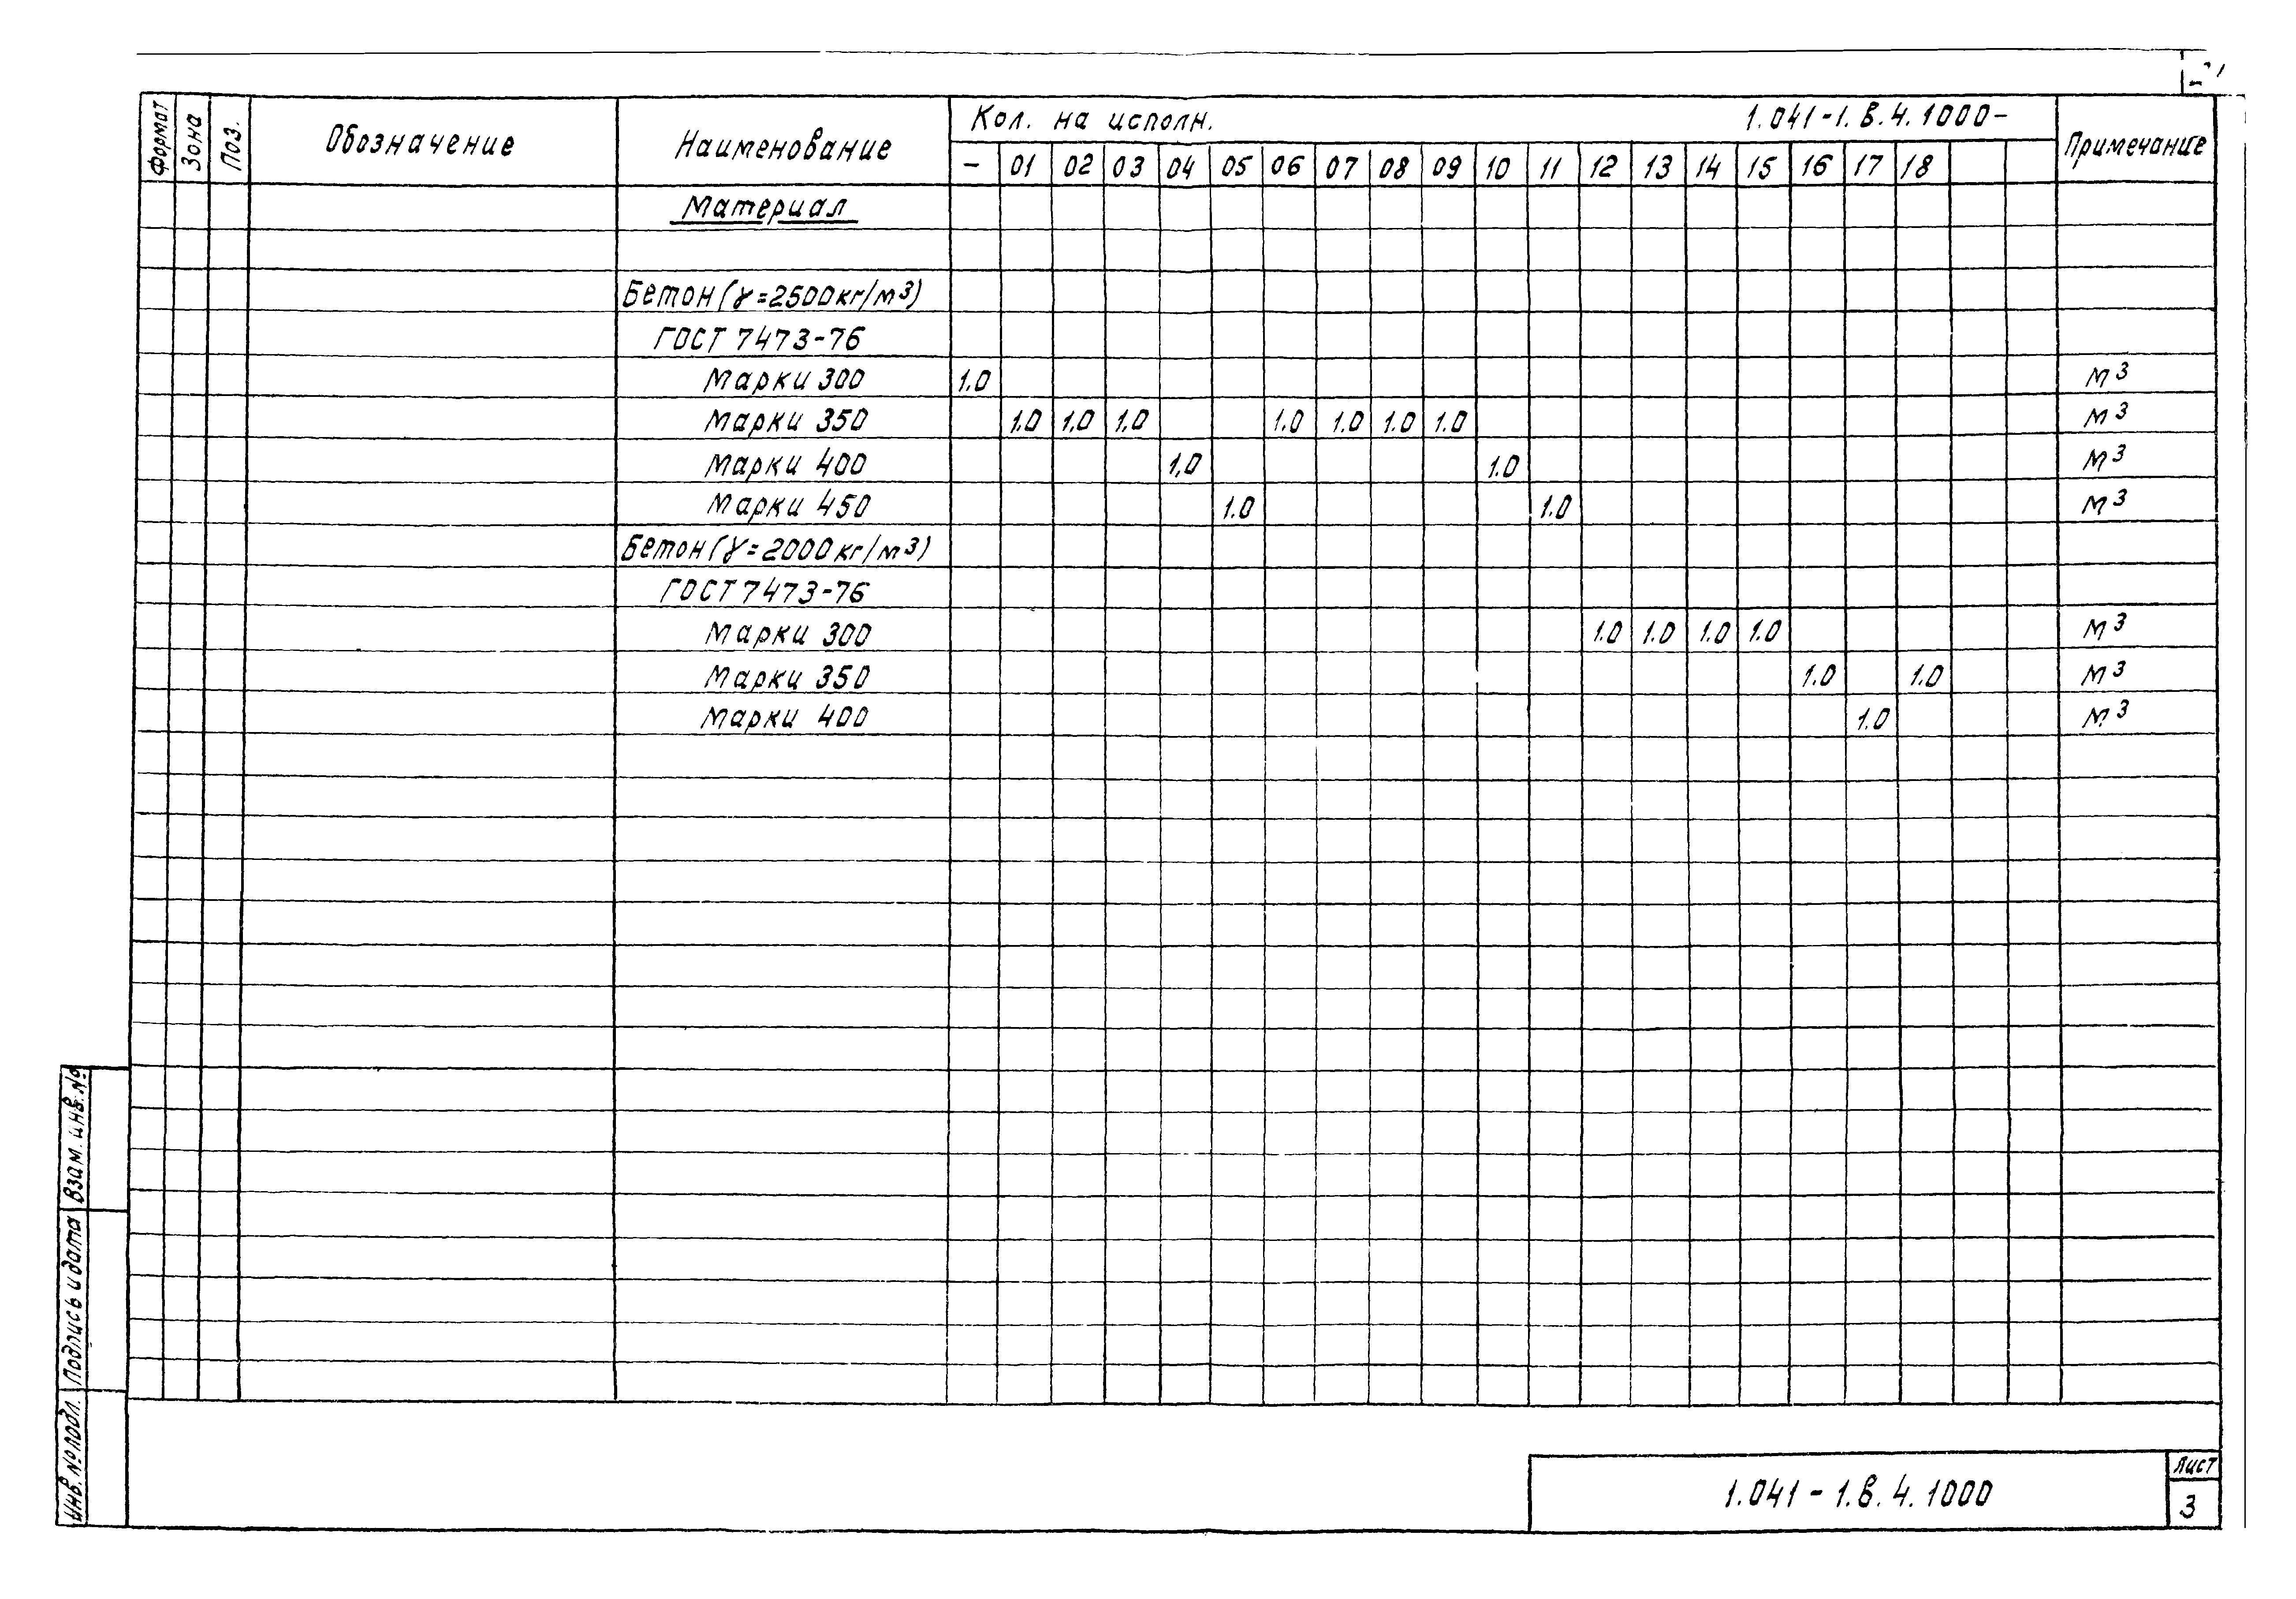 Формат Зона Поз. Обозначение Наименование Кол. на исполн. 1.041-1.в.4.1000- Примечание
– 01 02 03 04 05 06 07 08 09 10 11 12 13 14 15 16 17 18
Материал
Бетон (γ=2500кг/м³)
ГОСТ 7473-76
Марки 300 1.0 м³
Марки 350 1.0 1.0 1.0 1.0 1.0 1.0 1.0 м³
Марки 400 1,0 1.0 м³
Марки 450 1.0 1.0 м³
Бетон (γ=2000кг/м³)
ГОСТ 7473-76
Марки 300 1.0 1.0 1.0 1.0 м³
Марки 350 1.0 1.0 м³
Марки 400 1.0 м³
Взам. инв. №
Подпись и дата
Инв. № подл.
1.041-1.в.4.1000
Лист
3